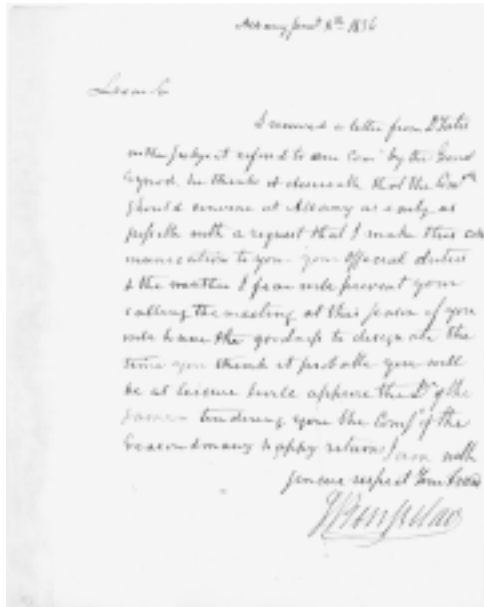 Albany Jany 8th 1836
Dear Sir
I received a letter from Dr Yates
on the subject refered to our Com by the Genl
Synod. he thinks it desireable that the Comee
should convene at Albany as early as
possible with a request that I make this com
munication to you - your Official duties
& the weather I fear will prevent your
calling the meeting at this season if you
will have the goodness to designate the
time you think it probable you will
be at leisure I will apprise the Dr of the
same - tendering you the Comps of the
Season & many happy returns I am with
sincere respect Your